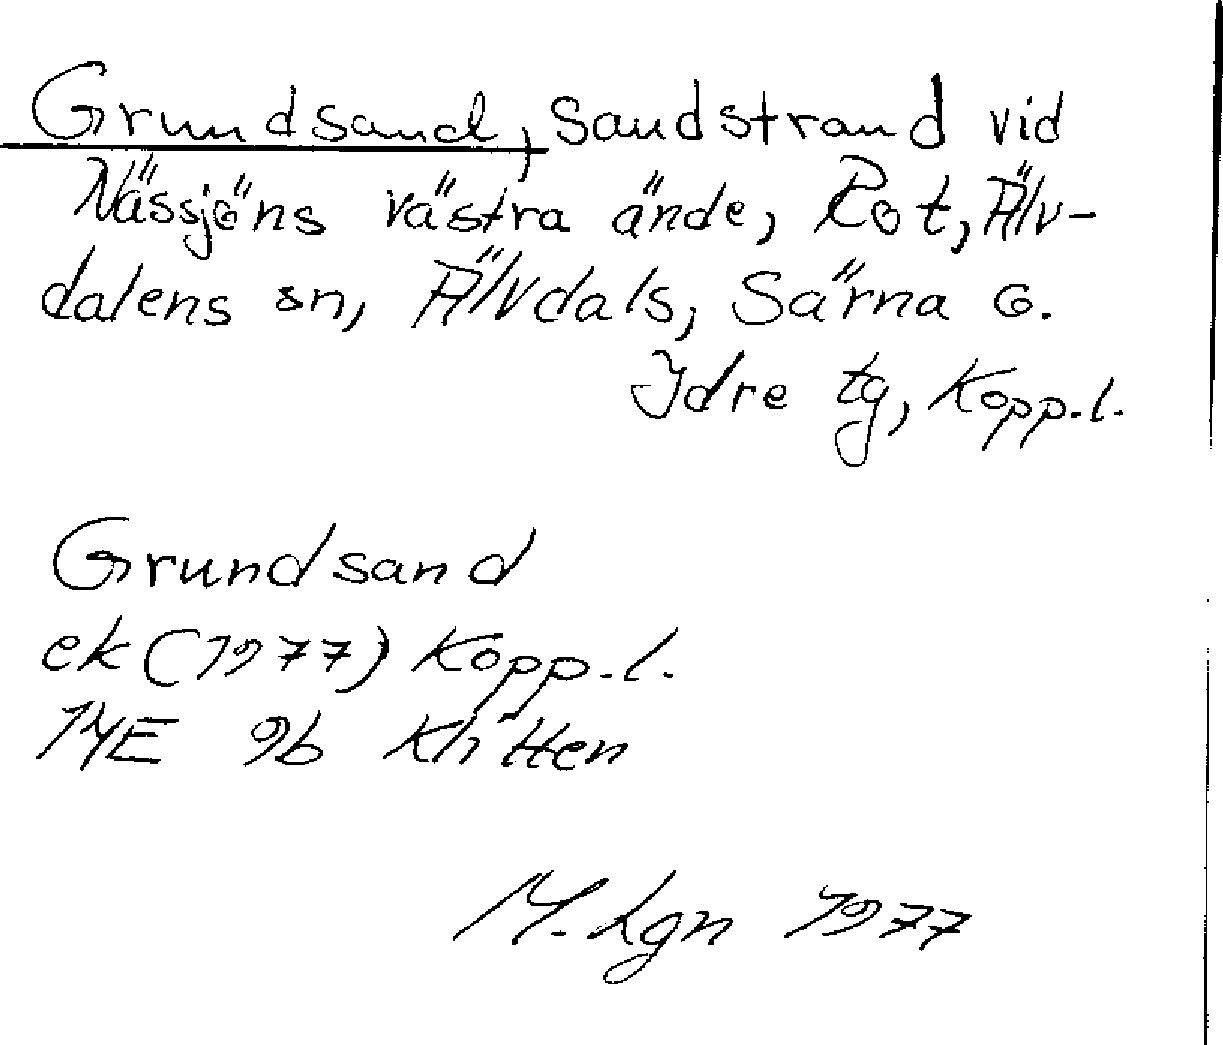 Grundsand, sandstrand vid
Nässjöns västra ände, Rot, Älv-
dalens sn, Älvdals, Särna o.
Idre tg, Kopp.l.
Grundsand
ek (1977) Kopp.l.
14E 9b Klitten
M. Lgn 1977